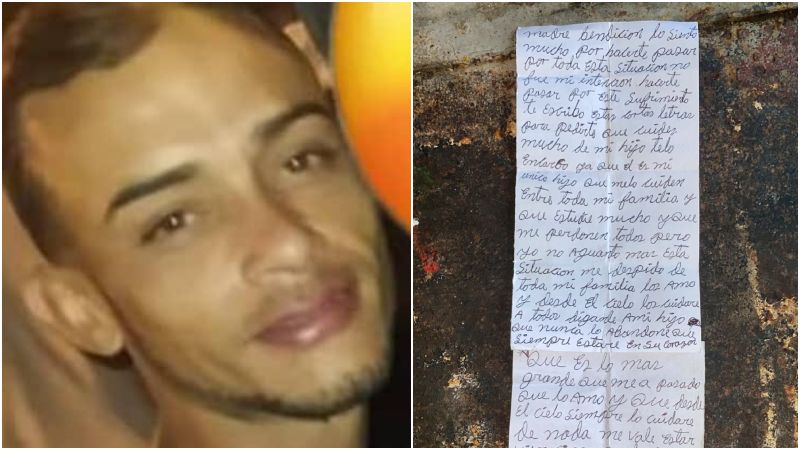 madre bendicion lo siento
mucho por hacerte pasar
por toda Esta Situacion no
fue mi intencion hacerte
pasar por Este Sufrimiento
te Escribo Estas cortas letras
para pedirte que cuides
mucho de mi hijo telo
Encargo ya que El Es mi
unico hijo que melo cuiden
Entre toda mi familia y
que Estudie mucho y que
me perdonen todos pero
yo no Aguanto mas Esta
Situacion me despido de
toda mi familia los Amo
y desde El cielo los cuidare
A todos digande Ami hijo
que nunca lo Abandone que
Siempre Estare En Su corason
Que Es lo mas
grande que me a pasado
que lo Amo y que desde
El cielo Siempre lo cuidare
de nada me vale Estar